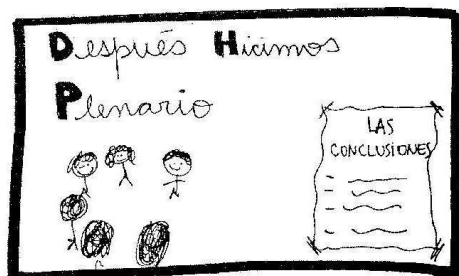 Después Hicimos
Plenario
LAS
CONCLUSIONES